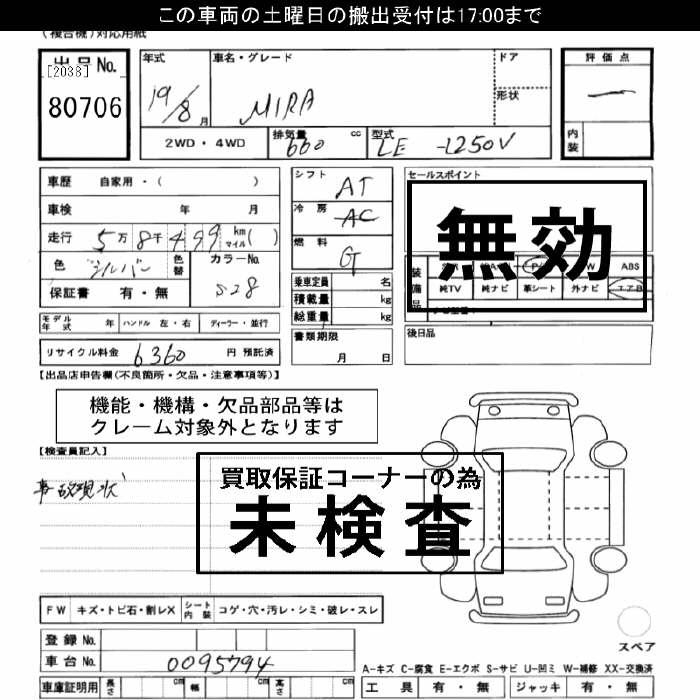 この車両の土曜日の搬出受付は17:00まで
(複合機)対応用紙
出品No.
[2038]
80706
年式
19/8月
車名・グレード
MIRA
ドア
形状
評価点
内装
2WD・4WD
排気量
660 cc
型式
LE -L250V
車歴 自家用・( )
車検 年 月
走行 5万8千499 km マイル( )
色 シルバー 色替
カラーNo.
S28
保証書 有・無
シフト AT
冷房 AC
燃料 G
乗車定員 名
積載量 kg
総重量 kg
書類期限
月 日
セールスポイント
無効
装備品
ABS
純TV 純ナビ 革シート 外ナビ エアB
後日品
モデル年式 年 ハンドル 左・右 ディーラー・並行
リサイクル料金 6360 円 預託済
【出品店申告欄(不良箇所・欠品・注意事項等)】
機能・機構・欠品部品等は
クレーム対象外となります
【検査員記入】
事故現状
買取保証コーナーの為
未検査
FW キズ・トビ石・割レX
シート内装 コゲ・穴・汚レ・シミ・破レ・スレ
登録No.
車台No. 0095794
車庫証明用 長さ cm 幅 cm 高さ cm
スペア
A-キズ C-腐食 E-エクボ S-サビ U-凹ミ W-補修 XX-交換済
工具 有・無 ジャッキ 有・無